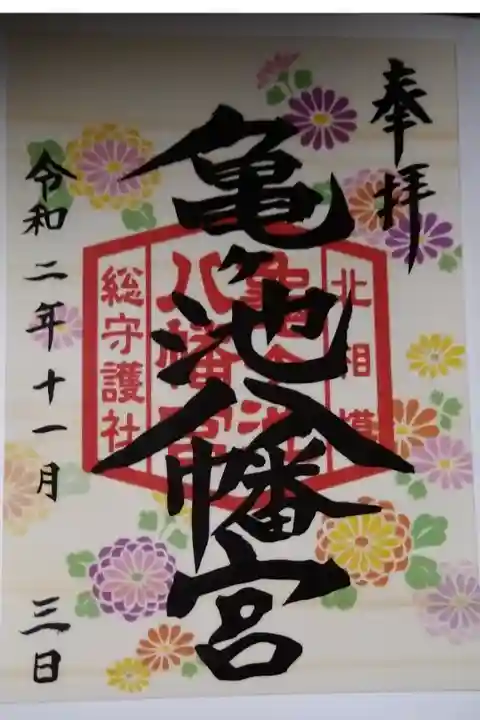 奉拝
北相模
亀ヶ池
八幡宮
総守護社
亀ヶ池八幡宮
令和二年十一月三日